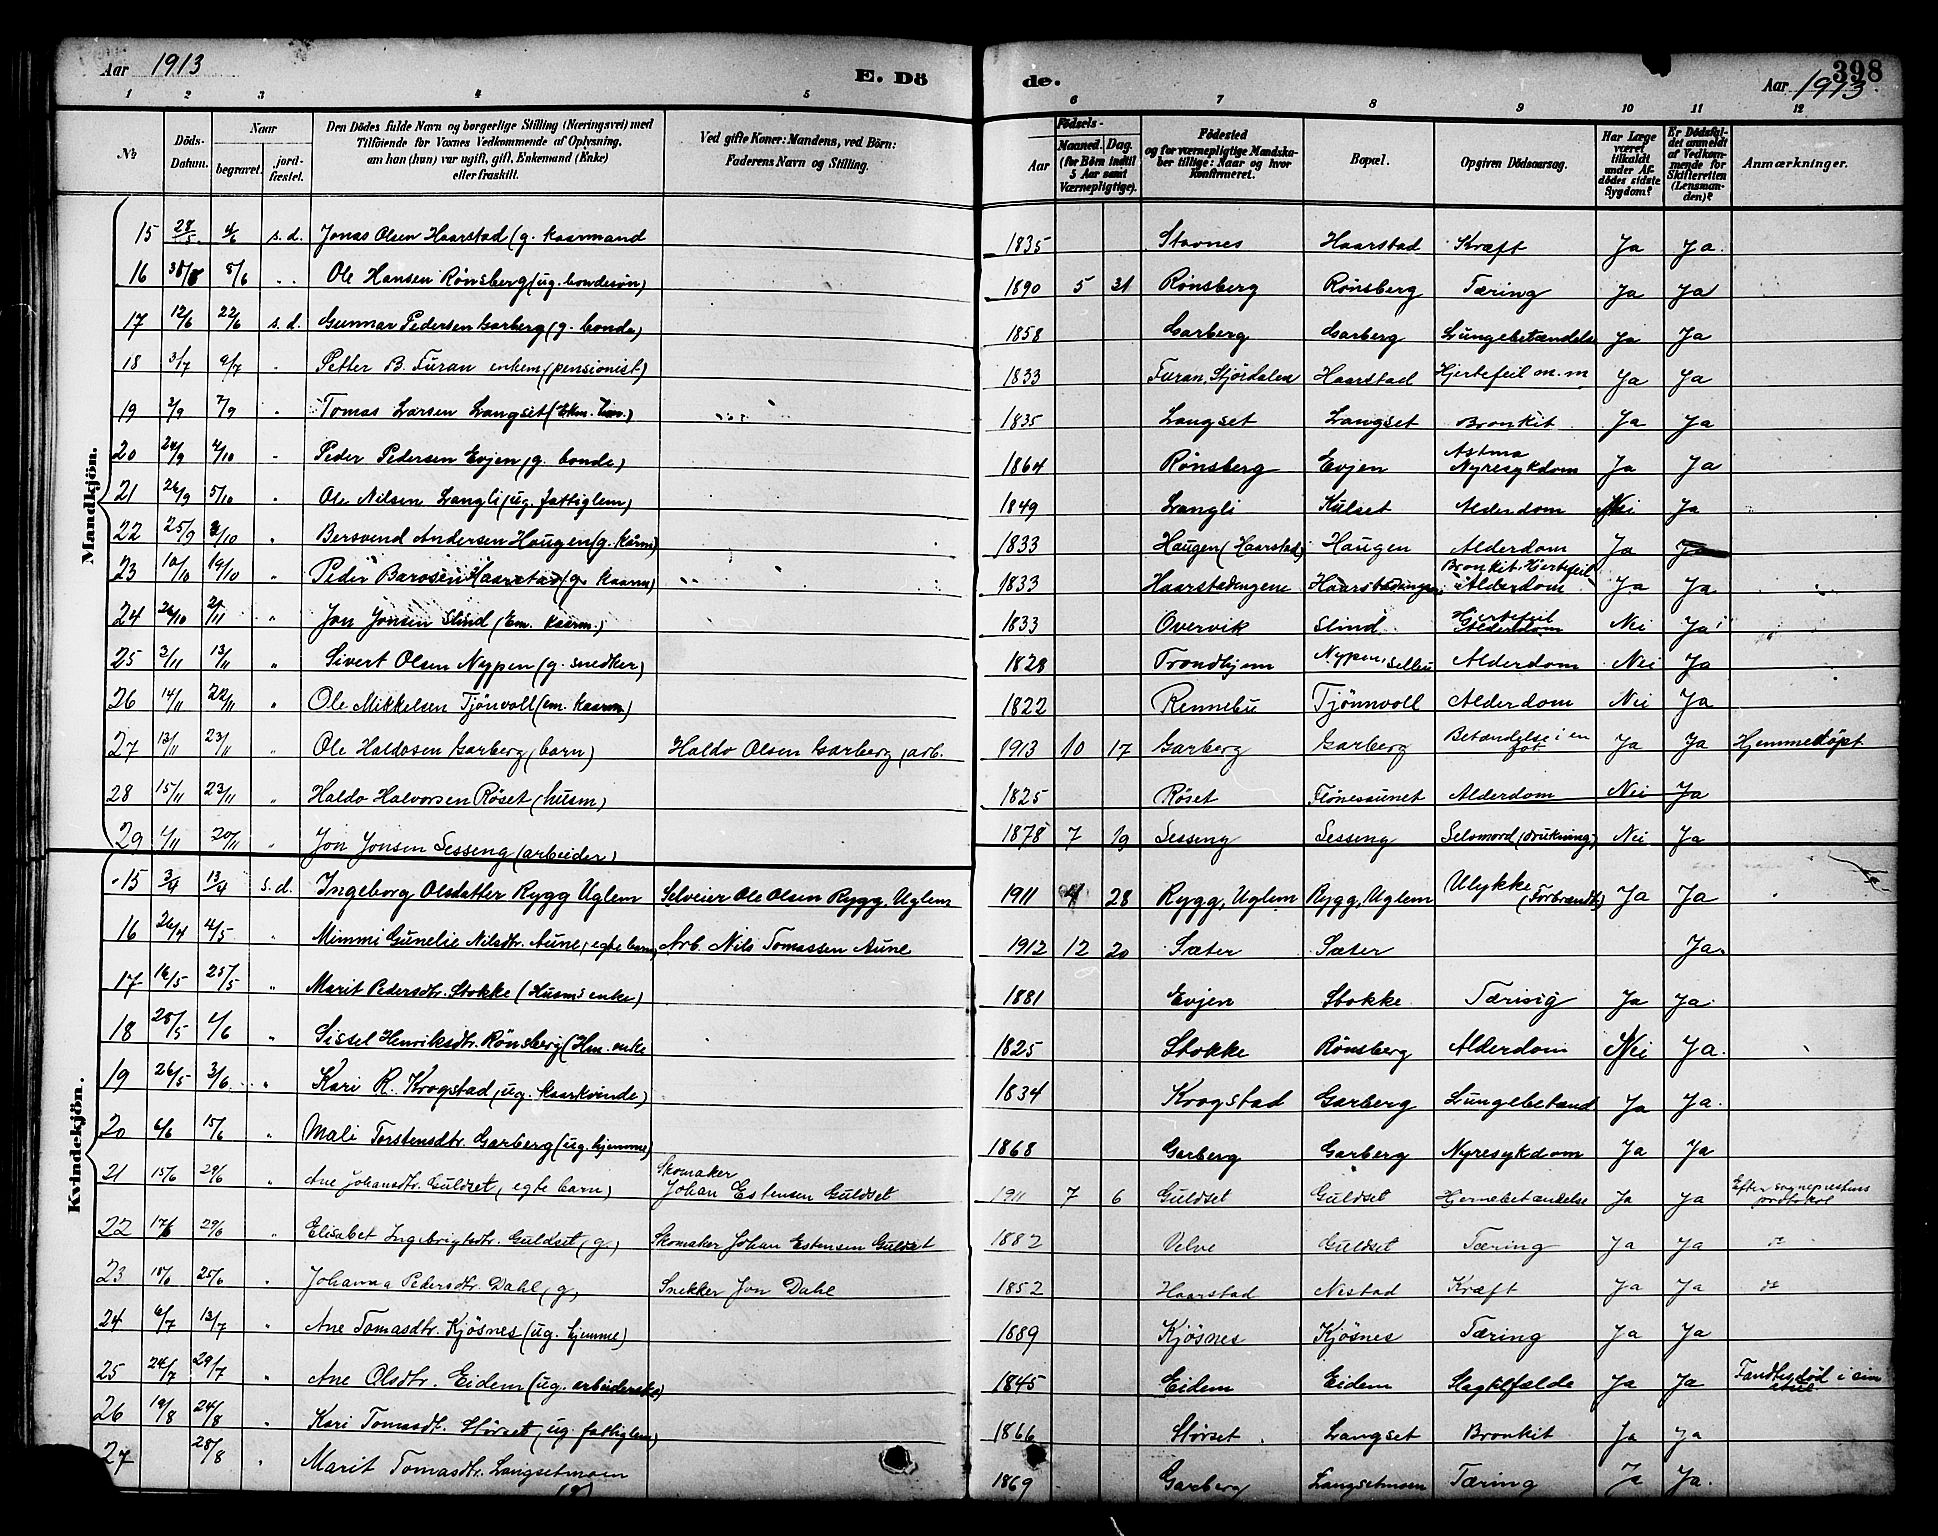 Aar 1913
E. Döde.
398
Aar 1913.
1 2 3 4 5 6 7 8 9 10 11 12
No
Döds-Datum.
Naar
begravet.
jordfæstet.
Den Dödes fulde Navn og borgerlige Stilling (Næringsvei) med Tilföiende for Voxnes Vedkommende af Oplysning, om han (hun) var ugift, gift, Enkemand (Enke) eller fraskilt.
Ved gifte Koner: Mandens, ved Börn: Faderens Navn og Stilling.
Födsels-
Aar
Maaned. Dag.
(for Börn indtil 5 Aar samt Værnepligtige).
Födested og for værnepligtige Mandskaber tillige: Naar og hvor Konfirmeret.
Bopæl.
Opgiven Dödsaarsag.
Har Læge været tilkaldt under Afdödes sidste Sygdom?
Er Dödsfaldet anmeldt af Vedkommende for Skifteretten (Lensmanden)?
Anmærkninger.
Mandkjön.
15 28/5 4/6 s.d. Jonas Olsen Haarstad (g. kaarmand 1835 Stavnes Haarstad Kræft Ja Ja.
16 8/6 " Ole Hansen Rönsberg (ug. bondesøn) 1890 5 31 Rønsberg Rønsberg Tæring Ja Ja
17 12/6 22/6 s.d. Gunnar Pedersen Garberg (g. bonde) 1858 Garberg Garberg Lungebetændelse Ja Ja
18 3/7 9/7 " Petter B. Furan enkem. (pensionist) 1833 Furan, Stjørdalen Haarstad Hjertefeil m. m Ja Ja
19 2/9 7/9 " Tomas Larsen Langset (Ekm. ) 1835 Langset Langset Bronkit Ja Ja
20 24/9 4/10 " Peder Pedersen Evjen (g. bonde) 1864 Rønsberg Evjen Astma Nyresykdom Ja Ja
21 26/9 5/10 " Ole Nilsen Langli (ug. fattiglem) 1849 Langli Kulset Alderdom Nei Ja
22 25/9 /10 " Bersvend Andersen Haugen (g. Kårm) 1833 Haugen (Haarstad) Haugen Alderdom Ja Ja
23 10/10 19/10 " Peder Larsen Haarstad (g. kaarm) 1833 Haarstadengene Haarstadengen Bronkit. Hjertefeil Alderdom Ja Ja
24 26/10 2/11 " Jon Jonsen Slind (Em. kaarm.) 1833 Overvik Slind Hjertefeil Alderdom Nei Ja
25 3/11 13/11 " Sivert Olsen Nypen (g. snedker) 1828 Trondhjem Nypen, Selbu Alderdom Nei Ja
26 14/11 22/11 " Ole Mikkelsen Tjönvoll (em. kaarm) 1822 Rennebu Tjönnvoll Alderdom Nei Ja
27 13/11 23/11 " Ole Haldosen Garberg (barn) Haldo Olsen Garberg, arb. 1913 10 17 Garberg Garberg Betændelse i en fot Ja Ja Hjemmedøpt
28 15/11 23/11 " Haldo Halvorsen Röset (husm) 1825 Røset Flönessunet Alderdom Nei Ja
29 1/11 20/11 " Jon Jonsen Sesseng (arbeider) 1878 7 19 Sesseng Sesseng Selvmord (drukning) Nei Ja
Kvindekjön.
15 3/4 13/4 s.d. Ingeborg Olsdatter Rygg Uglem Selveier Ole Olsen Rygg, Uglem 1911 4 28 Rygg, Uglem Rygg, Uglem Ulykke (Forbrændt) Ja Ja
16 26/4 4/5 " Mimmi Gunelie Nilsdtr. Aune, egte barn Arb. Nils Tomassen Aune 1912 12 20 Sæter Sæter Ja.
17 16/5 25/5 " Marit Pedersdtr. Stokke (Husm's enke) 1881 Evjen Stokke Tæring Ja Ja.
18 28/5 4/6 " Sissel Henriksdtr. Rönsberg (Hm. enke 1825 Stokke Rønsberg Alderdom Nei Ja.
19 26/5 3/6 " Kari R. Krogstad, ug. kaarkvinde) 1834 Krogstad Garberg Lungebetænd Ja Ja.
20 6/6 15/6 " Mali Torstensdtr. Garberg (ug. hjemme) 1868 Garberg Garberg Nyresykdom Ja Ja
21 15/6 29/6 " Ane Johansdtr. Guldset, egte barn) Skomaker Johan Estensen Guldset 1911 7 6 Guldset Guldset Hjernebetændelse Ja Ja Efter sogneprestens protokol
22 17/6 29/6 " Elisabet Ingebrigtsdtr. Guldset, g.) Skomaker Johan Estensen Guldset 1882 Velve Guldset Tæring Ja Ja do
23 18/6 25/6 " Johanna Pedersdtr. Dahl, g, Snekker Jon Dahl 1852 Haarstad Nestad Kræft Ja Ja do
24 6/7 13/7 " Ane Tomasdtr. Kjösnes (ug. hjemme) 1889 Kjösnes Kjösnes Tæring Ja Ja
25 24/7 29/7 " Ane Olsdtr. Eidem (ug. arbeiderske) 1845 Eidem Eidem Slagtilfælde Ja Ja Fandtes død i sin
26 19/8 24/8 " Kari Tomasdt. Störset, ug. fattiglem) 1866 Störset Langset Bronkit Ja Ja
27 28/8 " Marit Tomasdtr. Langsetmoen 1869 Garberg Langsetmoen Tæring Ja Ja.